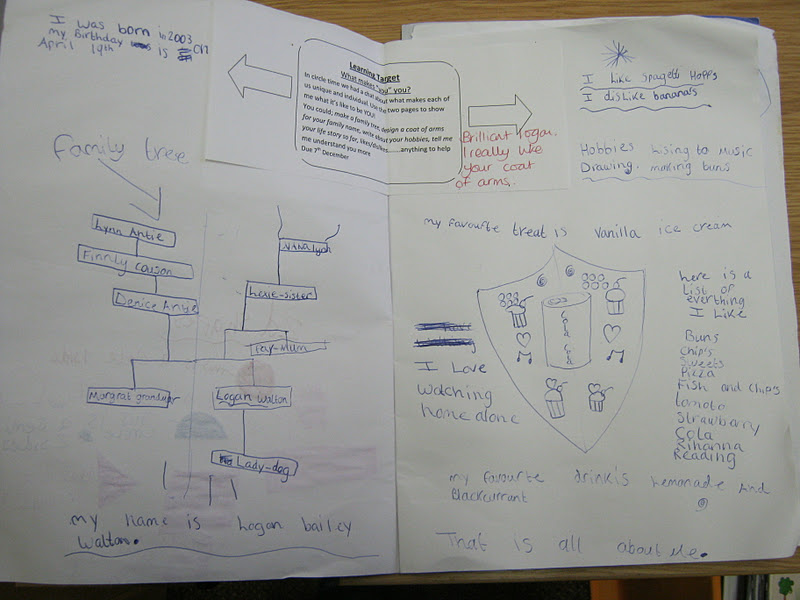 I was born in 2003
my Birthday is on
April 14th
Learning Target
What makes "you" you?
In circle time we had a chat about what makes each of
us unique and individual. Use the two pages to show
me what it's like to be YOU!
You could; make a family tree, design a coat of arms
for your family name, write about your hobbies, tell me
your life story so far, likes/dislikes......anything to help
me understand you more
Due 7th December
Brilliant Logan.
I really like
your coat
of arms.
Family tree
Lynn Antie
Finnly couson
Denice Antye
NANA lyon
Lexie-sister
Fay-Mum
Margrat grandmar
Logan Walton
Lady-dog
my Name is Logan bailey
Walton.
I Like Spagetti Hopps
I dislike banana's
Hobbies lising to music
Drawing. making buns
my favourte treat is vanilla ice cream
I Love
Watching
home alone
Cola
here is a
List of
everthing
I Like
Buns
Chip's
Sweets
Pizza
Fish and chip's
tomato
Strawbarry
Cola
Rihanna
Reading
my favourte drink is Lemonade And
Blackcurrant
That is all about Me.